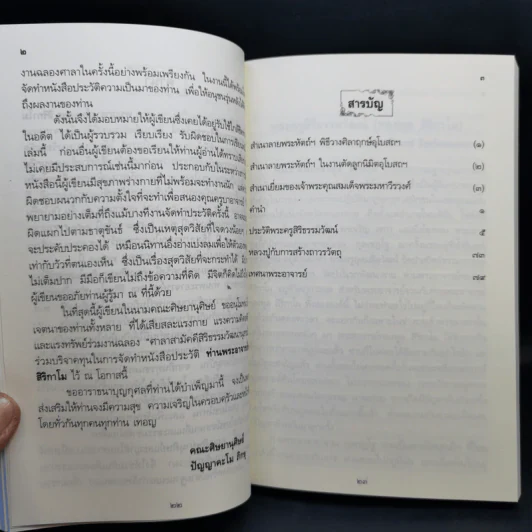 ๒
งานฉลองศาลาในครั้งนี้อย่างพร้อมเพรียงกัน ในงานนี้ได้
จัดทำหนังสือประวัติความเป็นมาของท่าน เพื่อให้อนุชนรุ่นหลังได้
ถึงผลงานของท่าน
ดังนั้นจึงได้มอบหมายให้ผู้เขียนซึ่งเคยได้อยู่รับใช้
ในอดีต ได้เป็นผู้รวบรวม เรียบเรียง รับผิดชอบในการ
เล่มนี้ ก่อนอื่นผู้เขียนต้องขอเรียนให้ท่านผู้อ่านได้ทราบ
ไม่เคยมีประสบการณ์เช่นนี้มาก่อน ประกอบกับในระหว่าง
หนังสือนี้ผู้เขียนมีสุขภาพร่างกายที่ไม่พร้อมจะทำงานนัก
ผิดชอบผนวกกับความตั้งใจที่จะทำเพื่อสนองคุณครูบาอาจารย์
พยายามอย่างเต็มที่ถึงแม้บางทีงานจัดทำประวัตินี้
ผิดแผกไปตามธาตุขันธ์ ซึ่งเป็นเหตุสุดวิสัยที่ใจดวงน้อยๆ
จะประคับประคองได้ เหมือนนิทานอึ่งอ่างเบ่งลมเพื่อให้ตัว
เท่ากับวัวที่ตนเองเห็น ซึ่งเป็นเรื่องสุดวิสัยที่จะกระทำได้
ไม่เต็มปาก มีมือก็เขียนไม่ถึงข้อความที่คิด มีจิตก็คิด
ผู้เขียนขออภัยท่านผู้รู้มา ณ ที่นี้ด้วย
ในที่สุดนี้ผู้เขียนในนามคณะศิษยานุศิษย์
เจตนาของท่านทั้งหลาย ที่ได้เสียสละแรงกาย แรงความคิด
และแรงทรัพย์ร่วมงานฉลอง "ศาลาสามัคคีสิริธรรมวัฒนา
ร่วมบริจาคทุนในการจัดทำหนังสือประวัติ ท่านพระอาจารย์
สิริกาโม ไว้ ณ โอกาสนี้
ขออาราธนาบุญกุศลที่ท่านได้บำเพ็ญมานี้ จงเป็น
ส่งเสริมให้ท่านจงมีความสุข ความเจริญในครอบครัวและ
โดยทั่วกันทุกคนทุกท่าน เทอญ
คณะศิษยานุศิษย์
ปัญญาคะโม ภิกขุ
๒๒
๓
สารบัญ
สำเนาลายพระหัตถ์ฯ พิธีวางศิลาฤกษ์อุโบสถฯ (๑)
สำเนาลายพระหัตถ์ฯ ในงานตัดลูกนิมิตอุโบสถฯ (๒)
สำเนาเยี่ยมของเจ้าพระคุณสมเด็จพระมหาวีรวงศ์ (๓)
คำนำ ๑
ประวัติพระครูสิริธรรมวัฒน์ ๕
หลวงปู่กับการสร้างถาวรวัตถุ ๗๓
เทศนาพระอาจารย์ ๗๔
๒๓